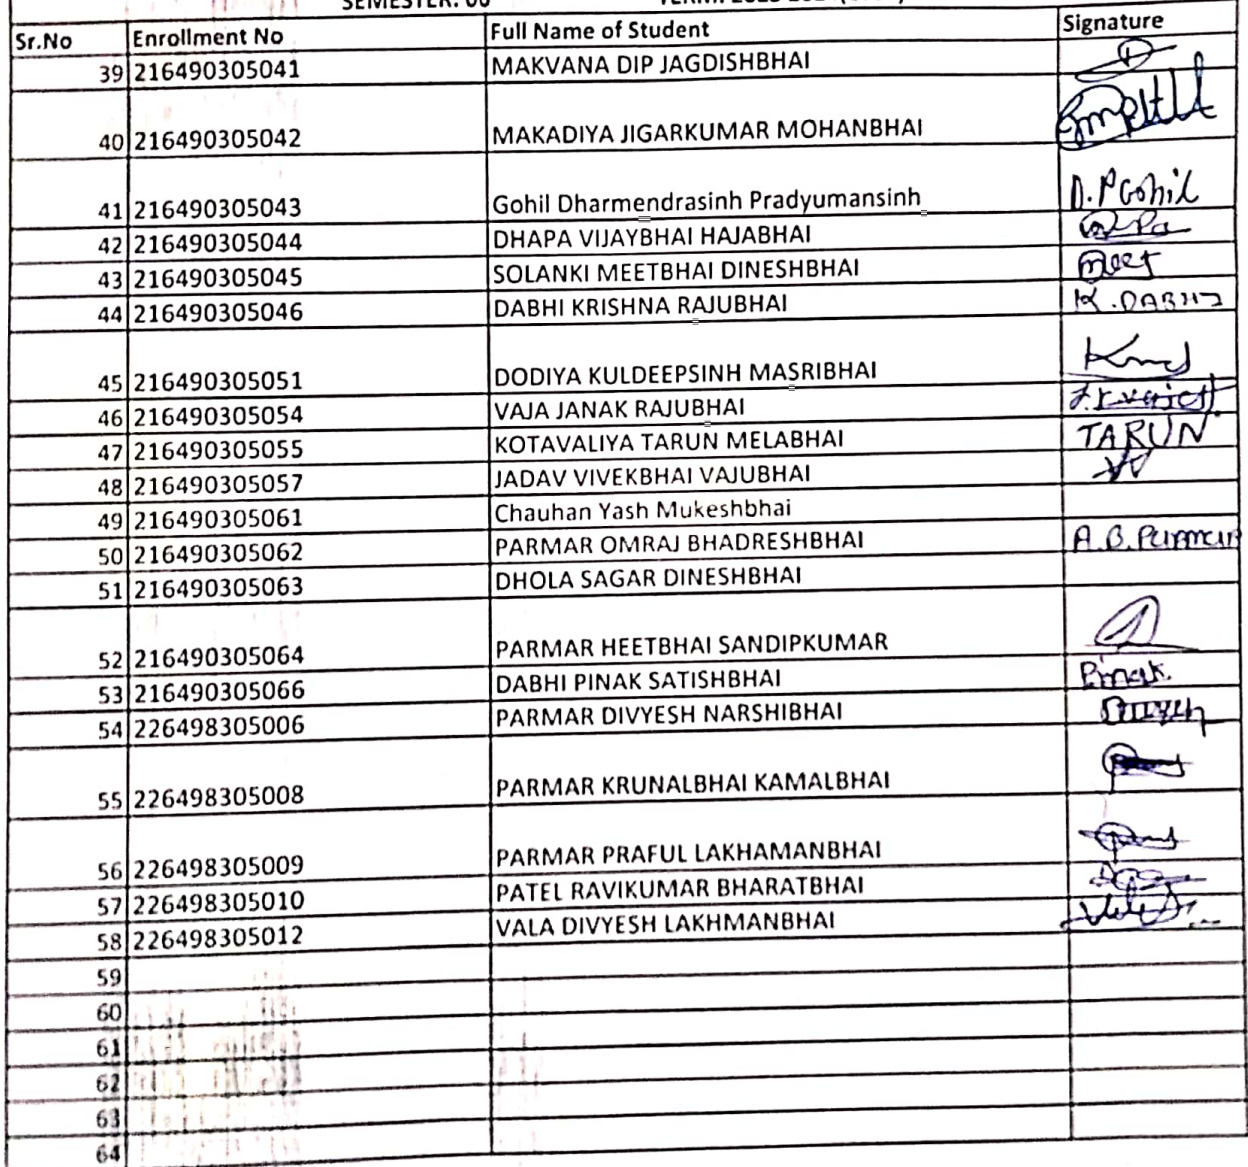 SEMESTER: 06
Sr.No Enrollment No Full Name of Student Signature
39 216490305041 MAKVANA DIP JAGDISHBHAI
40 216490305042 MAKADIYA JIGARKUMAR MOHANBHAI
41 216490305043 Gohil Dharmendrasinh Pradyumansinh D.P Gohil
42 216490305044 DHAPA VIJAYBHAI HAJABHAI
43 216490305045 SOLANKI MEETBHAI DINESHBHAI meet
44 216490305046 DABHI KRISHNA RAJUBHAI K.DABHI
45 216490305051 DODIYA KULDEEPSINH MASRIBHAI
46 216490305054 VAJA JANAK RAJUBHAI
47 216490305055 KOTAVALIYA TARUN MELABHAI TARUN
48 216490305057 JADAV VIVEKBHAI VAJUBHAI
49 216490305061 Chauhan Yash Mukeshbhai
50 216490305062 PARMAR OMRAJ BHADRESHBHAI A.B.Parmar
51 216490305063 DHOLA SAGAR DINESHBHAI
52 216490305064 PARMAR HEETBHAI SANDIPKUMAR
53 216490305066 DABHI PINAK SATISHBHAI Pinak
54 226498305006 PARMAR DIVYESH NARSHIBHAI
55 226498305008 PARMAR KRUNALBHAI KAMALBHAI
56 226498305009 PARMAR PRAFUL LAKHAMANBHAI
57 226498305010 PATEL RAVIKUMAR BHARATBHAI
58 226498305012 VALA DIVYESH LAKHMANBHAI
59
60
61
62
63
64